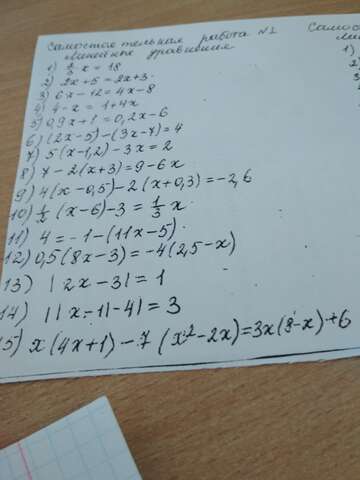 Самостоятельная работа №1
Линейные уравнения
1) 2/3 x = 18
2) 2x + 5 = 2x + 3.
3) 6x - 12 = 4x - 8
4) 4 - x = 1 + 4x
5) 0,9x + 1 = 0,2x - 6
6) (2x - 5) - (3x - 7) = 4
7) 5(x - 1,2) - 3x = 2
8) 7 - 2(x + 3) = 9 - 6x
9) 4(x - 0,5) - 2(x + 0,3) = -2,6
10) (x - 6) - 3 = 1/3 x.
11) 4 = -1 - (11x - 5).
12) 0,5(8x - 3) = -4(2,5 - x)
13) |2x - 3| = 1
14) ||x - 1| - 4| = 3
15) x(4x + 1) - 7(x² - 2x) = 3x(8 - x) + 6
Самос
1)
2)